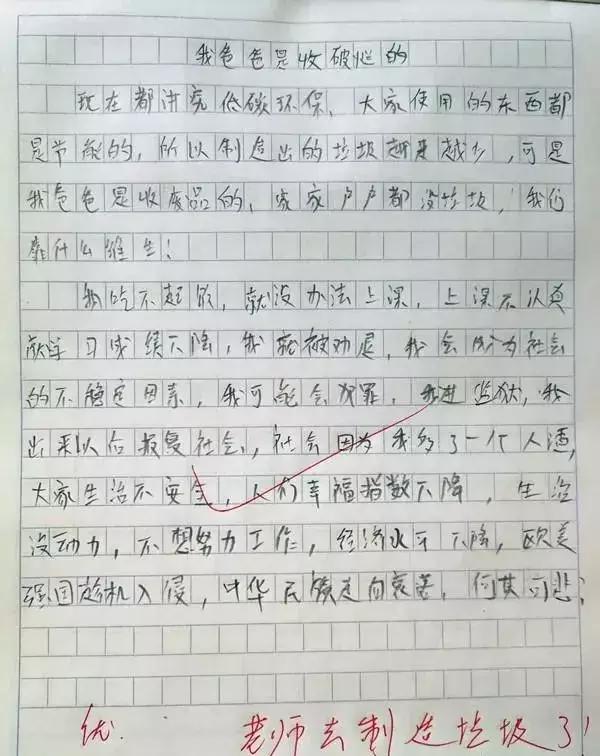 我爸爸是收破烂的
现在都讲究低碳环保，大家使用的东西都
是节能的，所以制造出的垃圾越来越少，可是
我爸爸是收废品的，家家户户都没垃圾，我们
靠什么维生！
我吃不起饭，就没办法上课，上课不认真
就学习成绩下降，我就被劝退，我会成为社会
的不稳定因素，我可能会犯罪，我进监狱，我
出来以后报复社会，社会因为我多了一个人渣，
大家生活不安全，人们幸福指数下降，生活
没动力，不想努力工作，经济水平下降，欧美
强国趁机入侵，中华民族走向衰落，何其可悲！
优 老师去制造垃圾了！